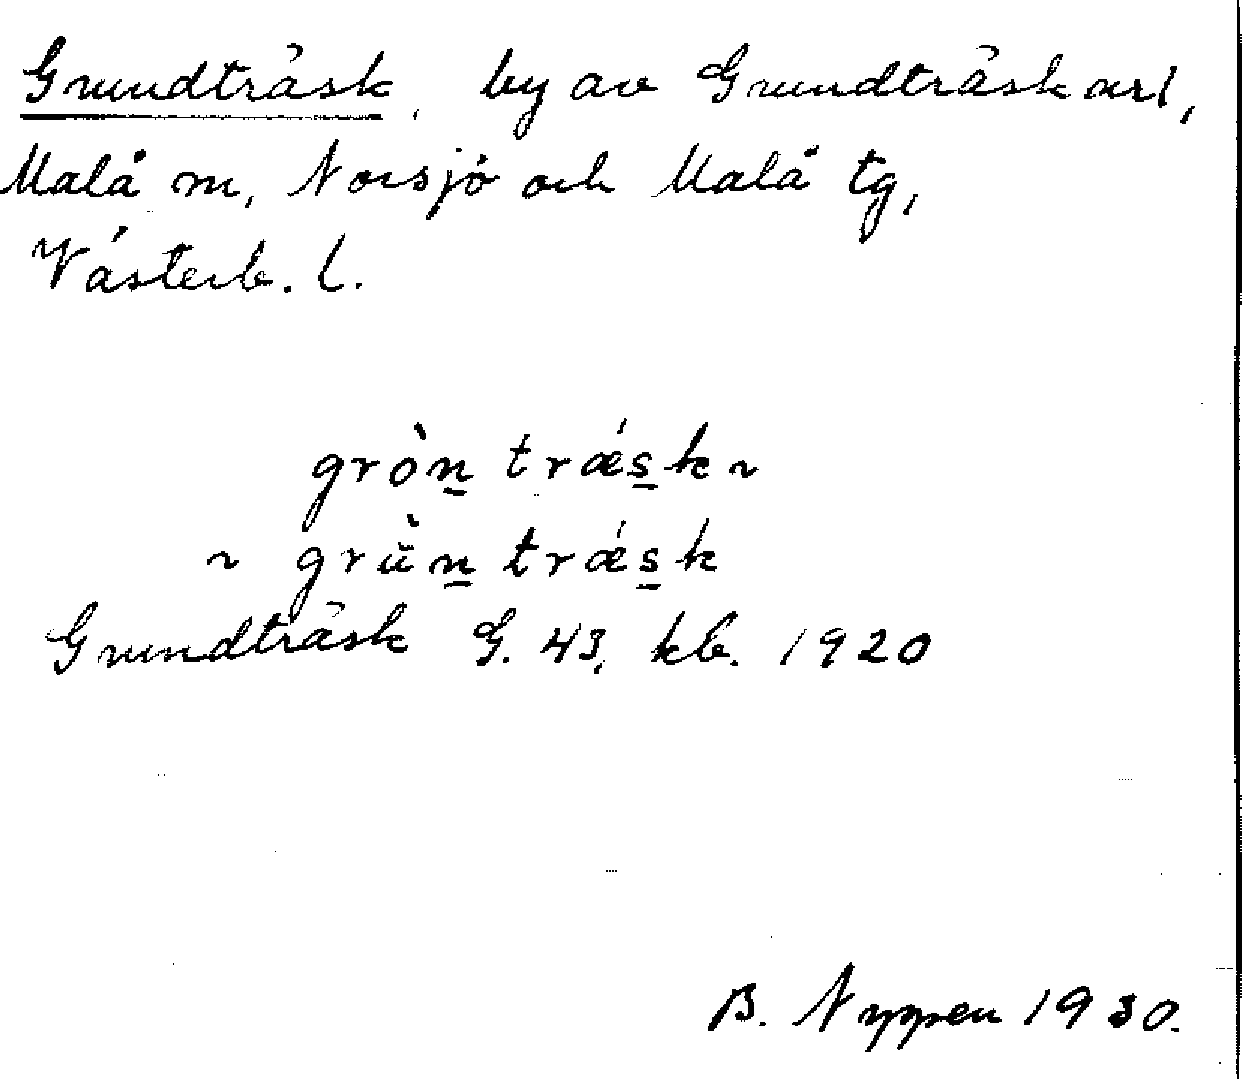 Grundträsk, by av Grundträsk url,
Malå m, Norsjö och Malå tg,
Västerb. l.
gròn træ´sk ~
~ grùn træ´sk
Grundträsk G. 43, kb. 1920
B. Nyppen 1930.